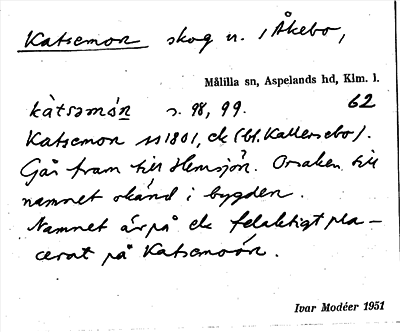 Katsemon skog n. i Åkebo,
Målilla sn, Aspelands hd, Klm. l.
kàtsəmón s. 98, 99. 62
Katsemon 1801, ek (bl. Kallersebo).
Går fram till Hemsjön. Orsaken till
namnet okänd i bygden.
Namnet är på ek felaktigt pla-
cerat på Katsemoön.
Ivar Modéer 1951